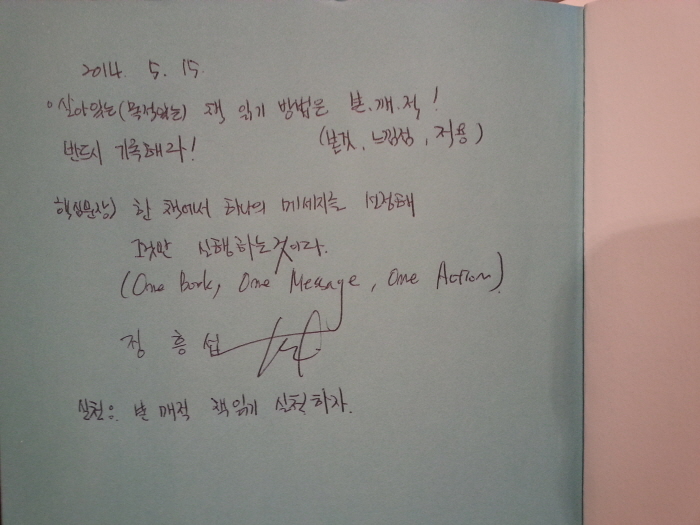 2014. 5. 15.
살아있는 (목적있는) 책 읽기 방법은 본.깨.적!
반드시 기록해라! (본것, 느낌점, 적용)
핵심문장) 한 책에서 하나의 메세지를 선정해
그것만 실행하는 것이다.
(One Book, One Message, One Action)
정 흥 섭
실천은: 본 깨적 책읽기 실천하자.